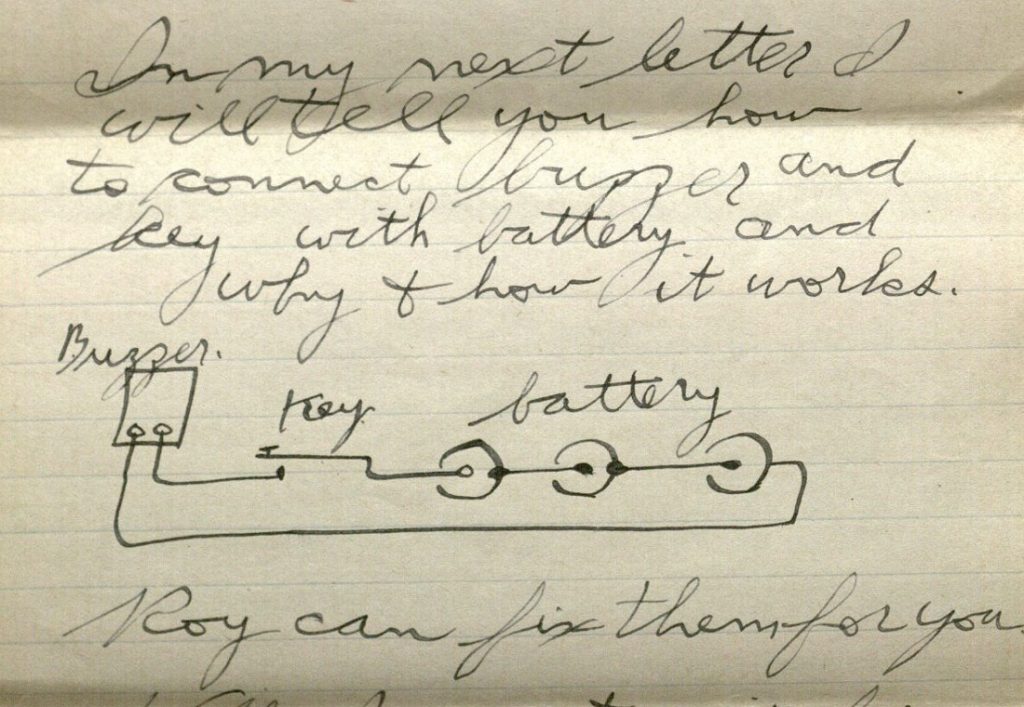 In my next letter I
will tell you how
to connect buzzer and
key with battery and
why & how it works.
Buzzer.
Key. battery
Roy can fix them for you